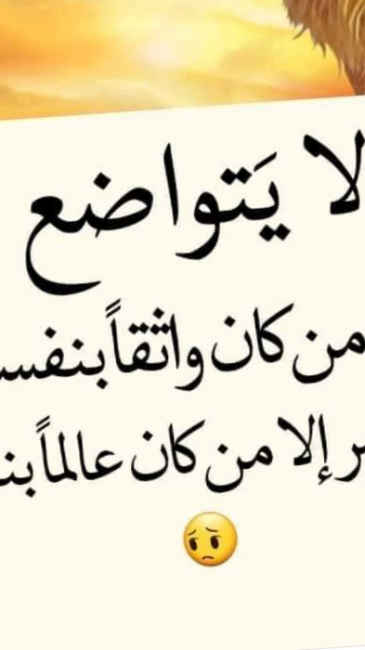 لا يَتواضع
من كان واثقاً بنفسـ
ـر إلا من كان عالماً بنـ